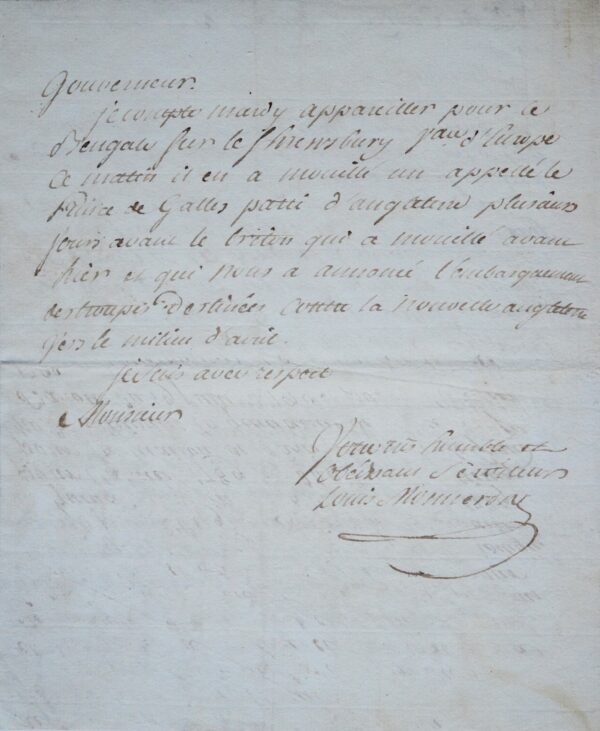 Gouverneur.
je compte mardy appareiller pour le
Bengale sur le Shrewsbury Vau. d'Europe
Ce matin il en a mouillé un appellé le
Prince de Galles parti d'angleterre plusieurs
jours avant le triton qui a mouillé avant
hier et qui nous a annoncé l'embarquement
des troupes destinées contre la nouvelle angleterre
vers le milieu d'avril.
je suis avec respect
Monsieur
Votre très humble et
Obéissant Serviteur
Louis